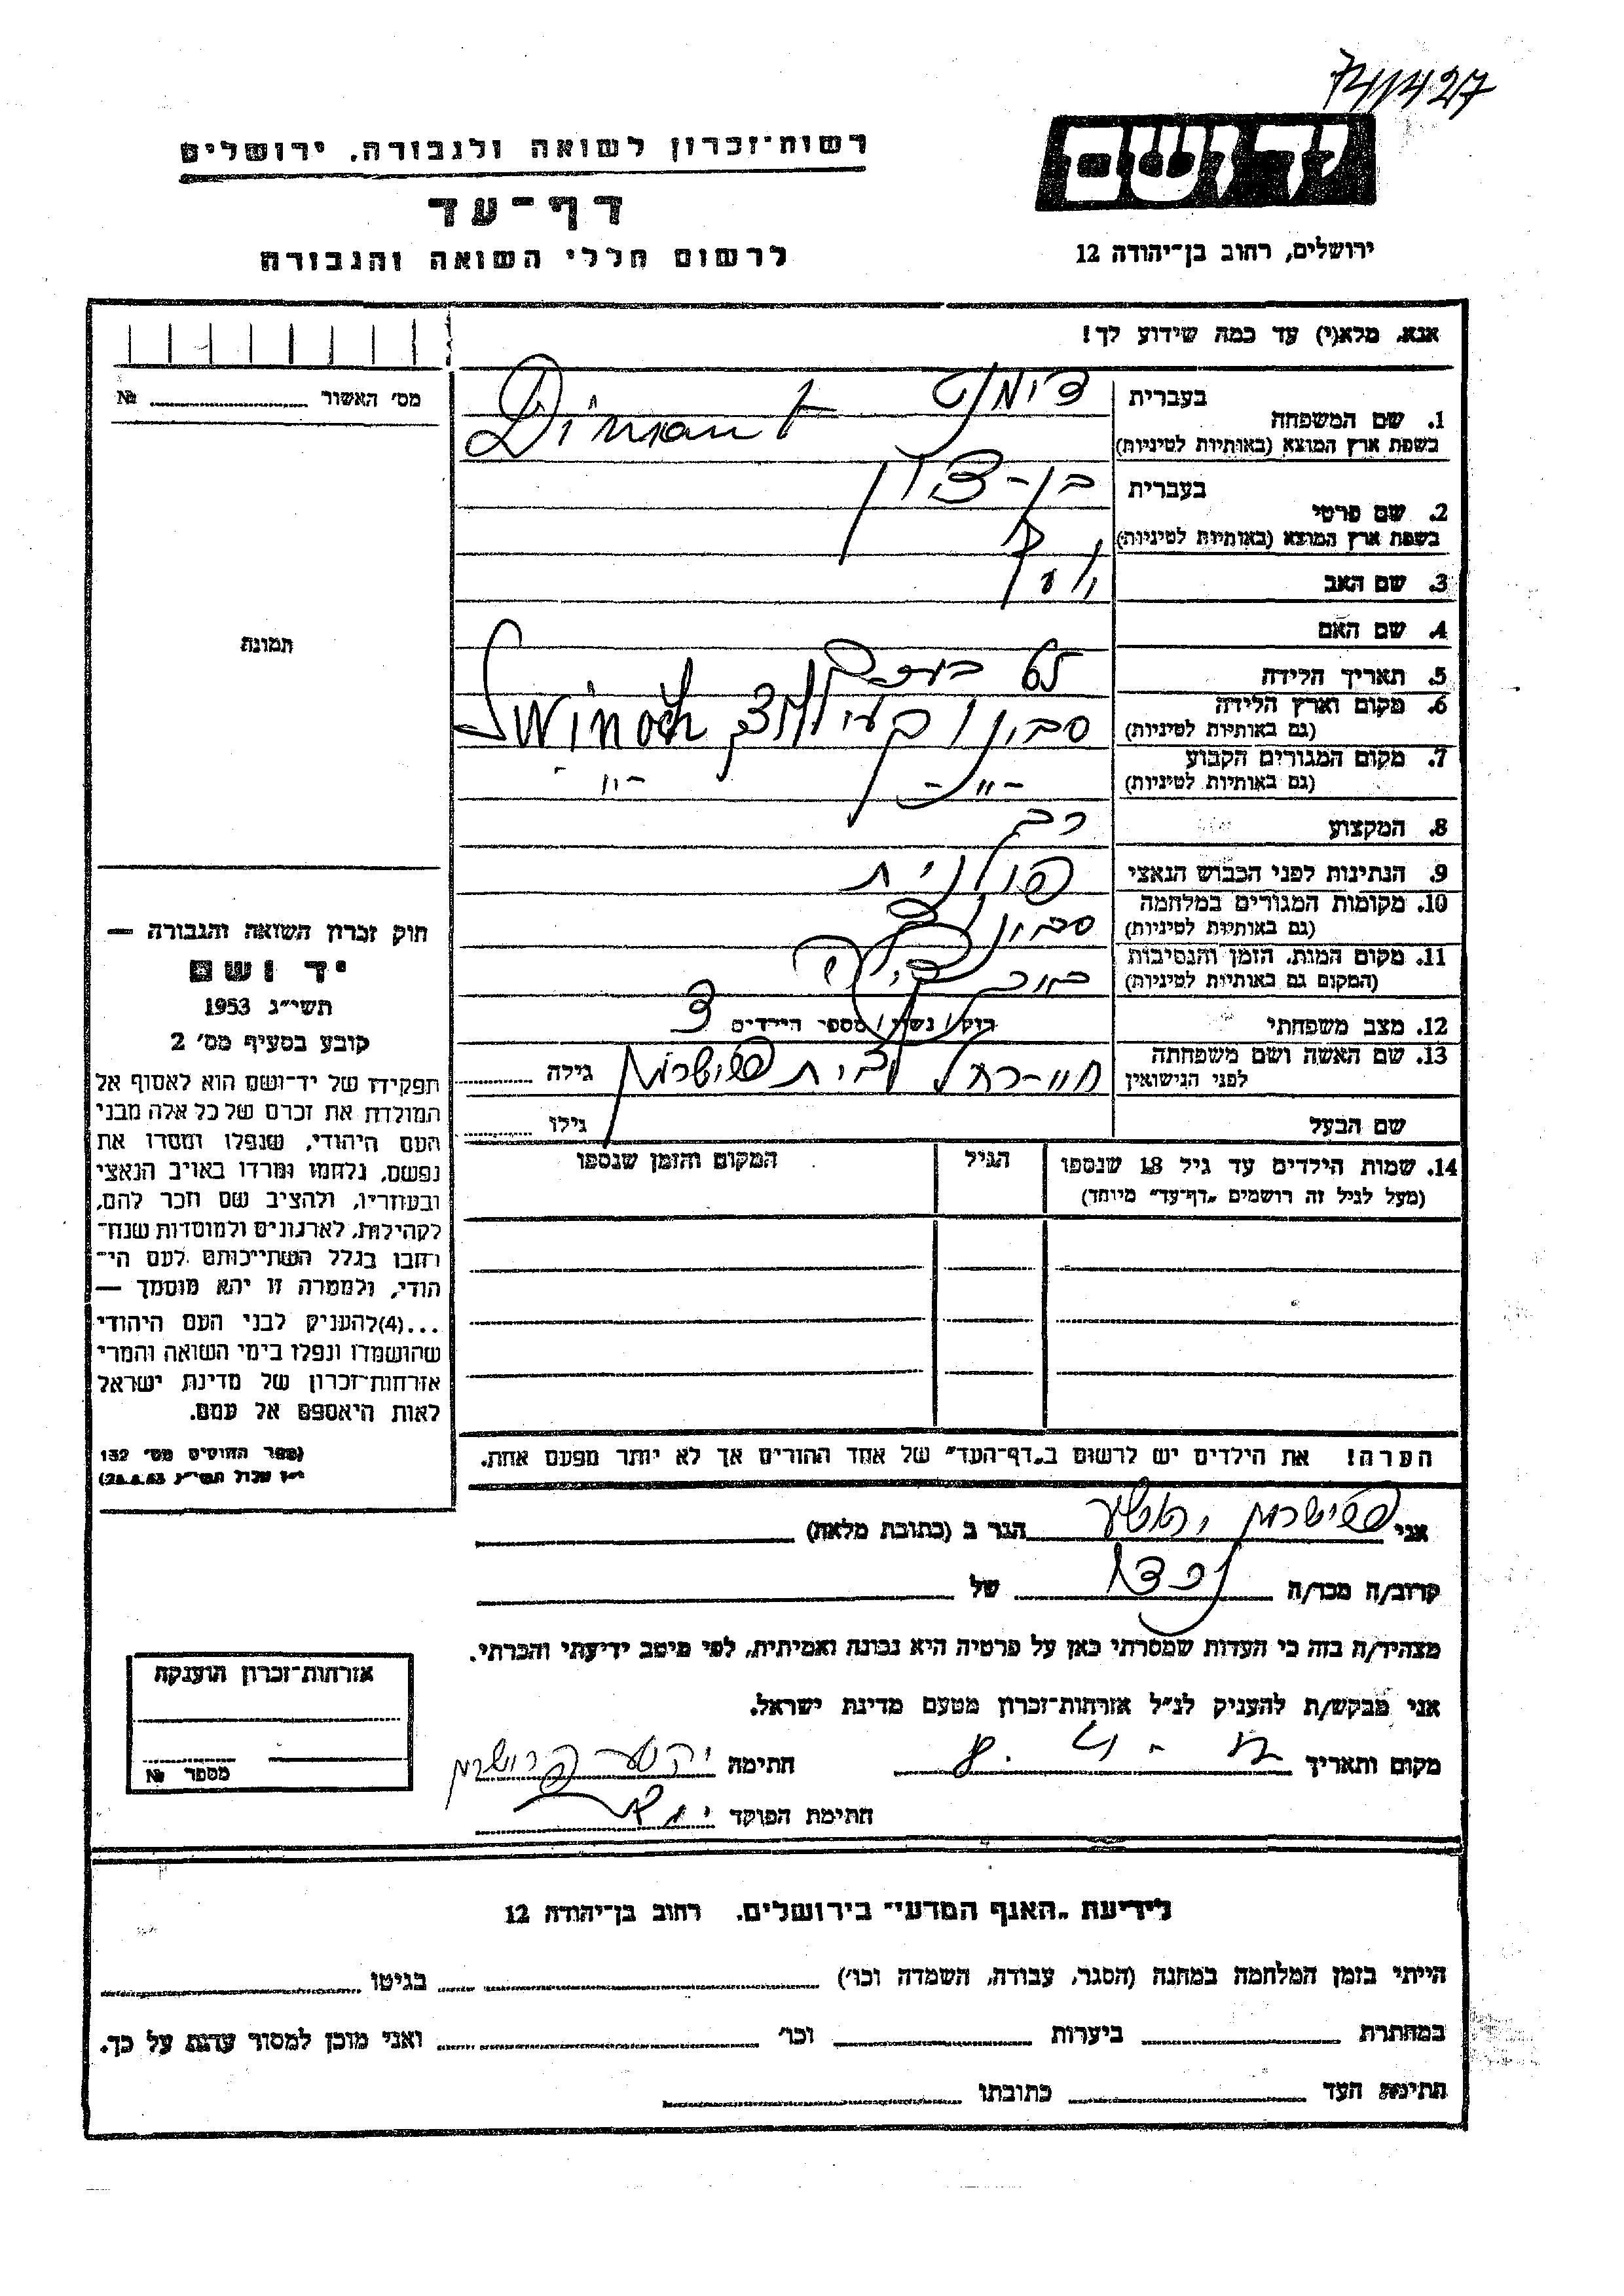 741427
רשות־זכרון לשואה ולגבורה, ירושלים
דף־עד
לרשום חללי השואה והגבורה
יד ושם
ירושלים, רחוב בן־יהודה 12
אנא, מלא(י) עד כמה שידוע לך!
מס' האשור № 
1. שם המשפחה בעברית דימנט
בשפת ארץ המוצא (באותיות לטיניות) Dimant
2. שם פרטי בעברית בן-ציון
בשפת ארץ המוצא (באותיות לטיניות)
3. שם האב
4. שם האם
תמונה
5. תאריך הלידה 65
6. מקום וארץ הלידה
(גם באותיות לטיניות)
7. מקום המגורים הקבוע -"- -"-
(גם באותיות לטיניות)
8. המקצוע רב
9. הנתינות לפני הכבוש הנאצי פולנית
10. מקומות המגורים במלחמה
(גם באותיות לטיניות)
11. מקום המות, הזמן והנסיבות
(המקום גם באותיות לטיניות)
12. מצב משפחתי רוק/ נשוי/ מספר הילדים 3
13. שם האשה ושם משפחתה חיה-רחל לבית גילה
לפני הנישואין
שם הבעל גילו
14. שמות הילדים עד גיל 18 שנספו הגיל המקום והזמן שנספו
(מעל לגיל זה רושמים „דף־עד” מיוחד)
הערה! את הילדים יש לרשום ב„דף־העד” של אחד ההורים אך לא יותר מפעם אחת.
חוק זכרון השואה והגבורה —
יד ושם
תשי״ג 1953
קובע בסעיף מס' 2
תפקידו של יד־ושם הוא לאסוף אל
המולדת את זכרם של כל אלה מבני
העם היהודי, שנפלו ומסרו את
נפשם, נלחמו ומרדו באויב הנאצי
ובעוזריו, ולהציב שם וזכר להם,
לקהילות, לארגונים ולמוסדות שנח־
רחבו בגלל השתייכותם לעם הי־
הודי, ולמטרה זו יהא מוסמך —
...(4)להעניק לבני העם היהודי
שהושמדו ונפלו בימי השואה והמרי
אזרחות־זכרון של מדינת ישראל
לאות היאספם אל עמם.
(ספר החוקים מס' 132
י״ז אלול תשי״ג 28.8.53)
אני הגר ב (כתובת מלאה)
קרוב/ה מכר/ה נכדו של
מצהיר/ה בזה כי העדות שמסרתי כאן על פרטיה היא נכונה ואמיתית, לפי מיטב ידיעתי והכרתי.
אני מבקש/ת להעניק לנ״ל אזרחות־זכרון מטעם מדינת ישראל.
מקום ותאריך חתימה
חתימת הפוקד
אזרחות־זכרון הוענקה
מספר №
לידיעת „האגף המדעי” בירושלים, רחוב בן־יהודה 12
הייתי בזמן המלחמה במחנה (הסגר, עבודה, השמדה וכו') בגיטו
במחתרת ביערות וכו' ואני מוכן למסור עדות על כך.
חתימת העד כתובתו